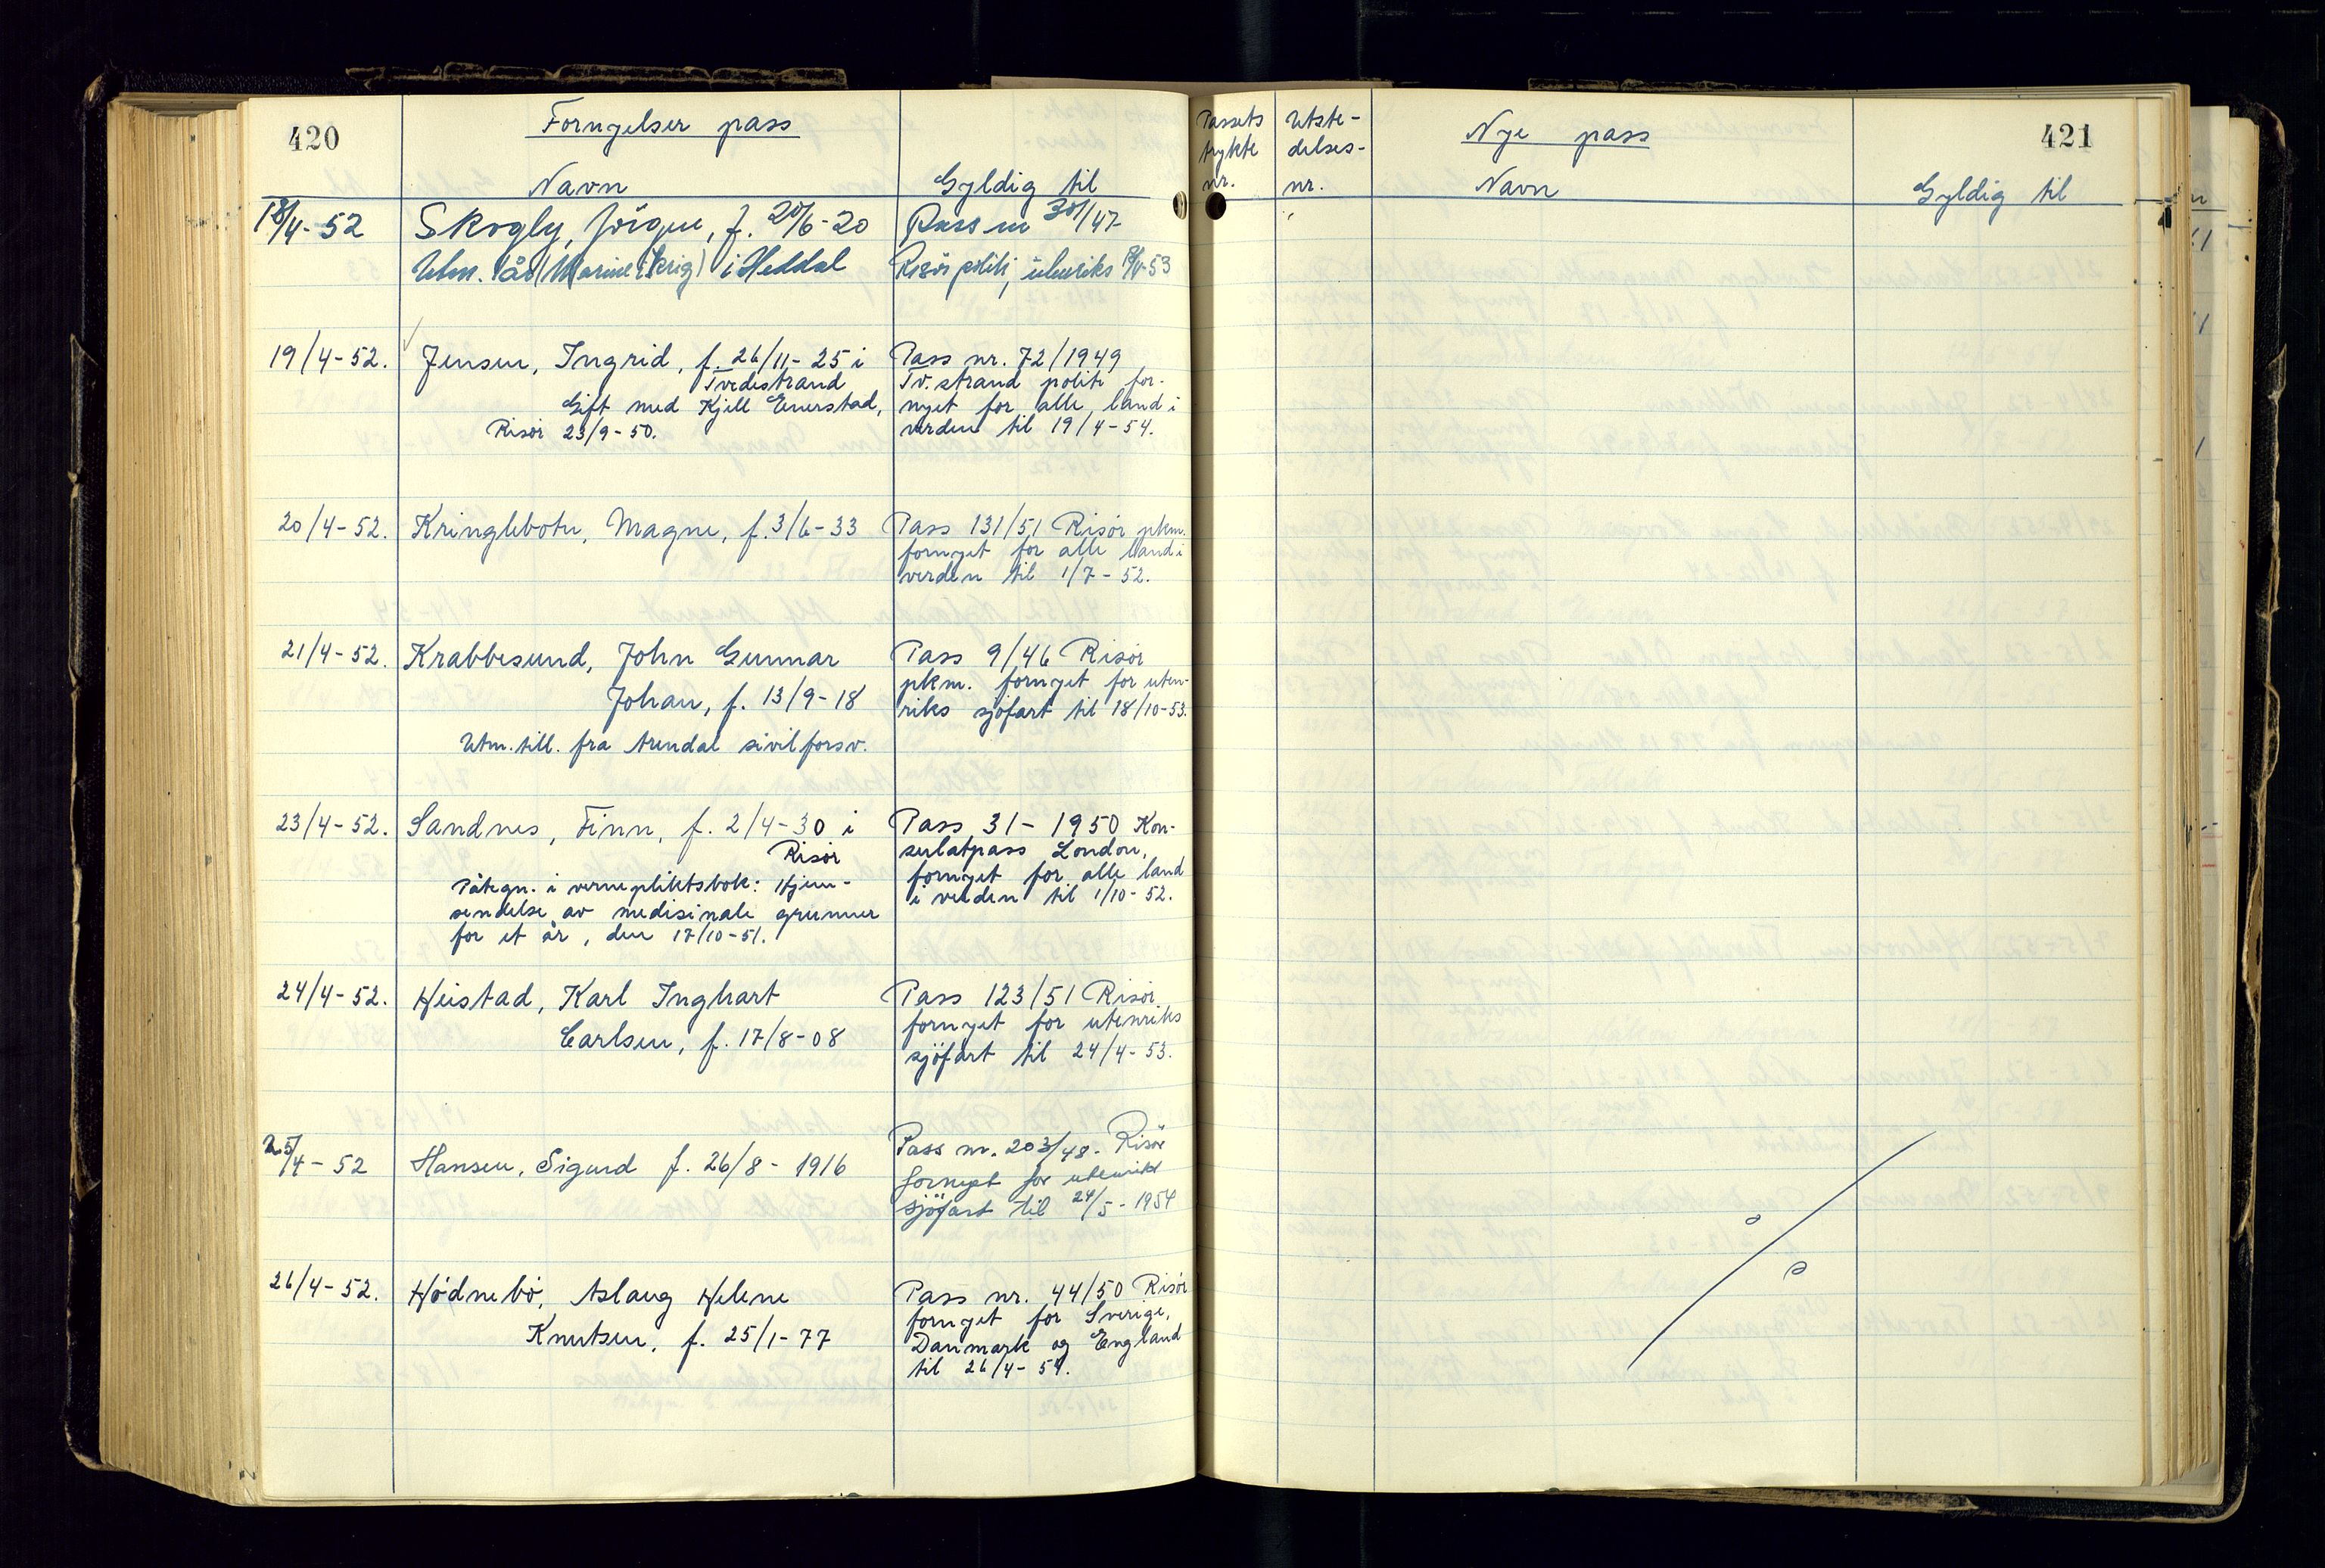 420
Fornyelser pass
Navn
Gyldig til
18/4-52
Skogly, Jörgen, f. 20/6-20
Pass nr 30/47
i Heddal
Risör politi, utenriks 18/4-53
19/4-52.
Jensen, Ingrid, f. 26/11-25 i
Tvedestrand
Gift med Kjell Enerstad,
Risör 23/9-50.
Pass nr. 72/1949
Tv.strand politi for-
nyet for alle land i
verden til 19/4-54.
20/4-52.
Kringlebotn, Magne, f. 3/6-33
Pass 131/51 Risör pkm.
fornyet for alle land i
verden til 1/7-52.
21/4-52.
Krabbesund, John Gunnar
Johan, f. 13/9-18
Utm.till. fra Arendal sivilforsv.
Pass 9/46 Risör
pkm. fornyet for uten-
riks sjöfart til 18/10-53.
23/4-52.
Sandnes, Finn, f. 2/4-30 i
Risör
Påtegn. i vernepliktsbok: Hjem-
sendelse av medisinale grunner
for et år, den 17/10-51.
Pass 31-1950 Kon-
sulatpass London,
fornyet for alle land
i verden til 1/10-52.
24/4-52.
Heistad, Karl Inghart
Carlsen, f. 17/8-08
Pass 123/51 Risör
fornyet for utenriks
sjöfart til 24/4-53.
25/4-52
Hansen, Sigurd f. 26/8-1916
Pass nr. 203/48- Risör
fornyet for utenriks
sjöfart til 24/5-1954
26/4-52.
Hödnebö, Aslaug Helene
Knutsen, f. 25/1-77
Pass nr. 44/50 Risör
fornyet for Sverige,
Danmark og England
til 26/4-54.
Passets
trykte
nr.
Utste-
delses-
nr.
Nye pass
Navn
421
Gyldig til